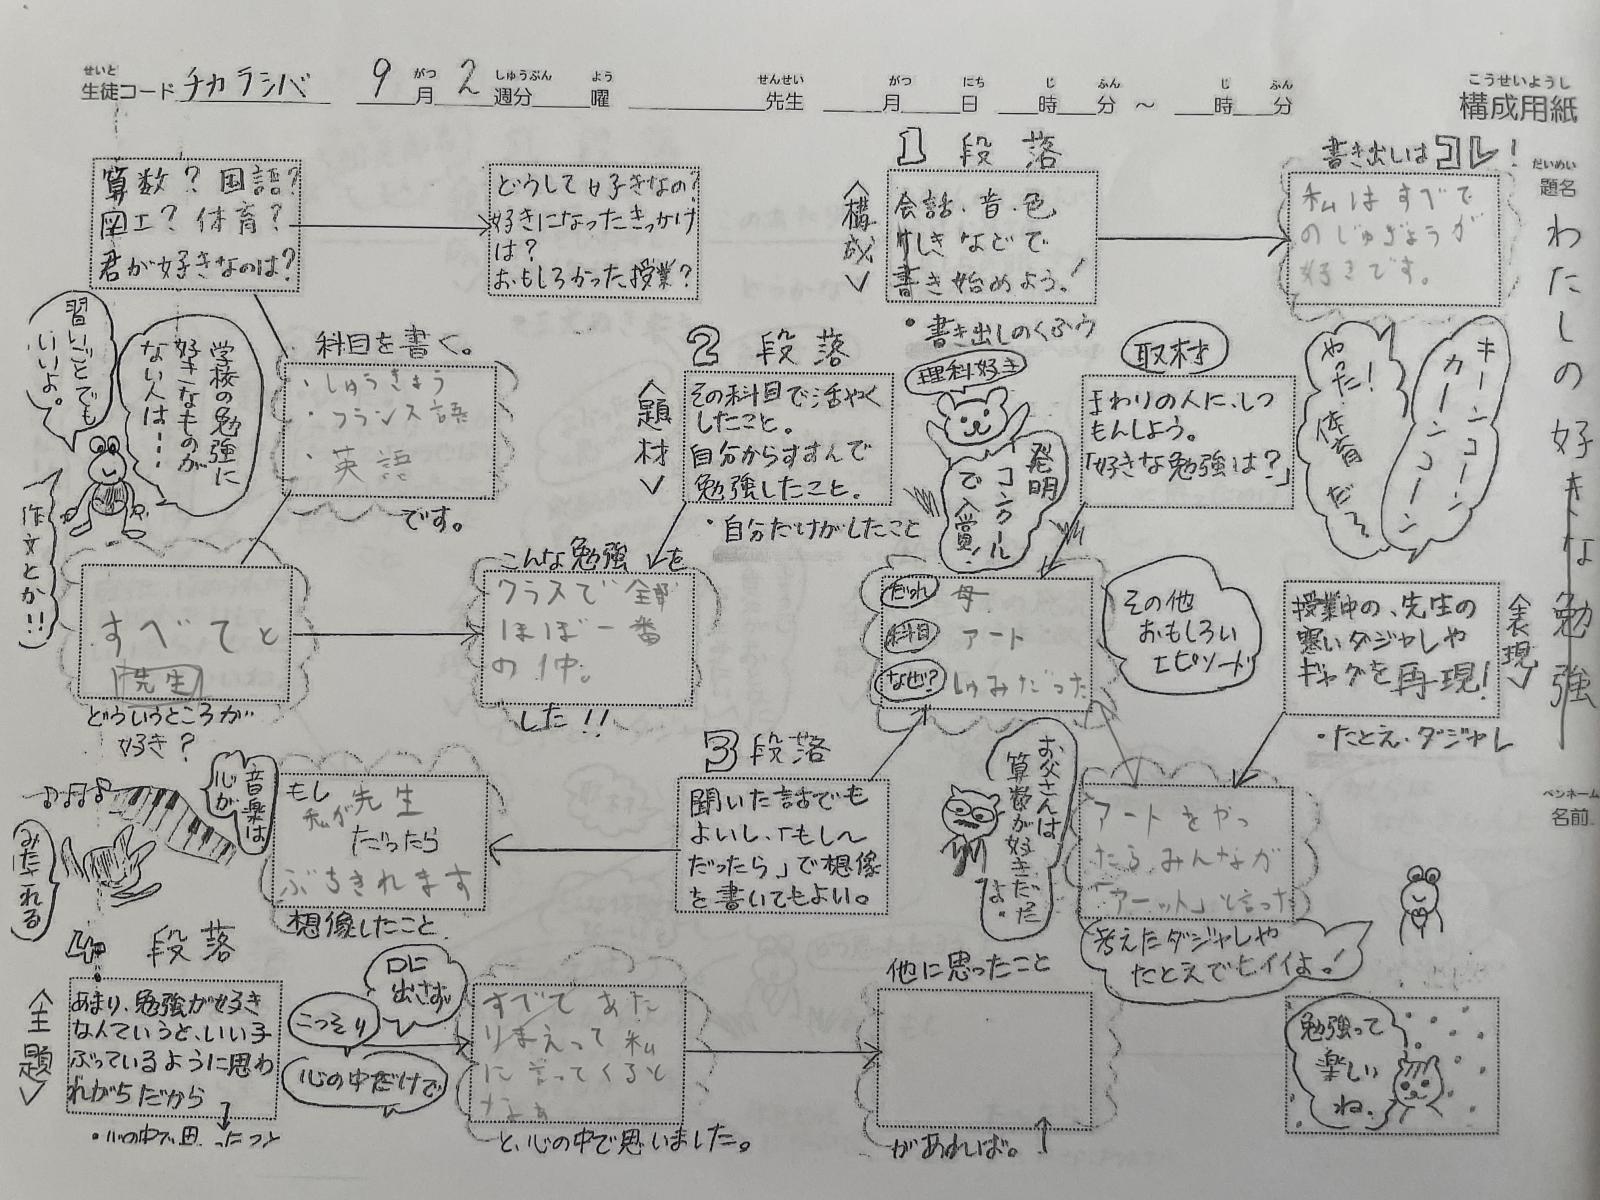 せいと
生徒コード チカラシバ 9 がつ 月 2 しゅうぶん 週分 よう 曜 せんせい 先生 がつ 月 にち 日 じ 時 ふん 分 ～ じ 時 ふん 分
こうせいようし
構成用紙
だいめい
題名
わたしの好きな勉強
ペンネーム
名前
1 段落
書き出しはコレ!
私はすべて
のじゅぎょうが
好きです。
<構成>
会話・音・色
けしきなどで
書き始めよう!
・書き出しのくふう
どうして好きなの?
好きになったきっかけ
は?
おもしろかった授業?
算数? 国語?
図工? 体育?
君が好きなのは?
習いごとでも
いいよ。
学校の勉強に
好きなものが
ない人は…
作文とか!!
科目を書く。
・しゅうきょう
・フランス語
・英語
です。
すべてと
先生
どういうところが
好き?
2 段落
<題材>
その科目で活やく
したこと。
自分からすすんで
勉強したこと。
・自分だけがしたこと
こんな勉強を
クラスで全部
ほぼ一番
の1中。
した!!
理科好き
発明
コンクール
で入賞!
取材
まわりの人に、しつ
もんしよう。
「好きな勉強は?」
キーンコーン
カーンコーン
やった!
体育だ〜
だれ 母
科目 アート
なぜ? しゅみだった
その他
おもしろい
エピソード
<表現>
授業中の、先生の
寒いダジャレや
ギャグを再現!
・たとえ・ダジャレ
アートをやっ
たら、みんなが
「アーット」と言った
考えたダジャレや
たとえでもイイよ!
3 段落
聞いた話でも
よいし、「もし〜
だったら」で想像
を書いてもよい。
お父さんは
算数が好きだった
よ。
もし
私が先生
だったら
ぶちきれます
想像したこと
音楽は
心が
みだれる
段落
<主題>
あまり、勉強が好き
なんていうと、いい子
ぶっているように思わ
れがちだから
こっそり
口に
出さず
心の中だけで
すべてあた
りまえって私
に言ってくると
なぁ
と、心の中で思いました。
他に思ったこと
があれば。
勉強って
楽しい
ね.